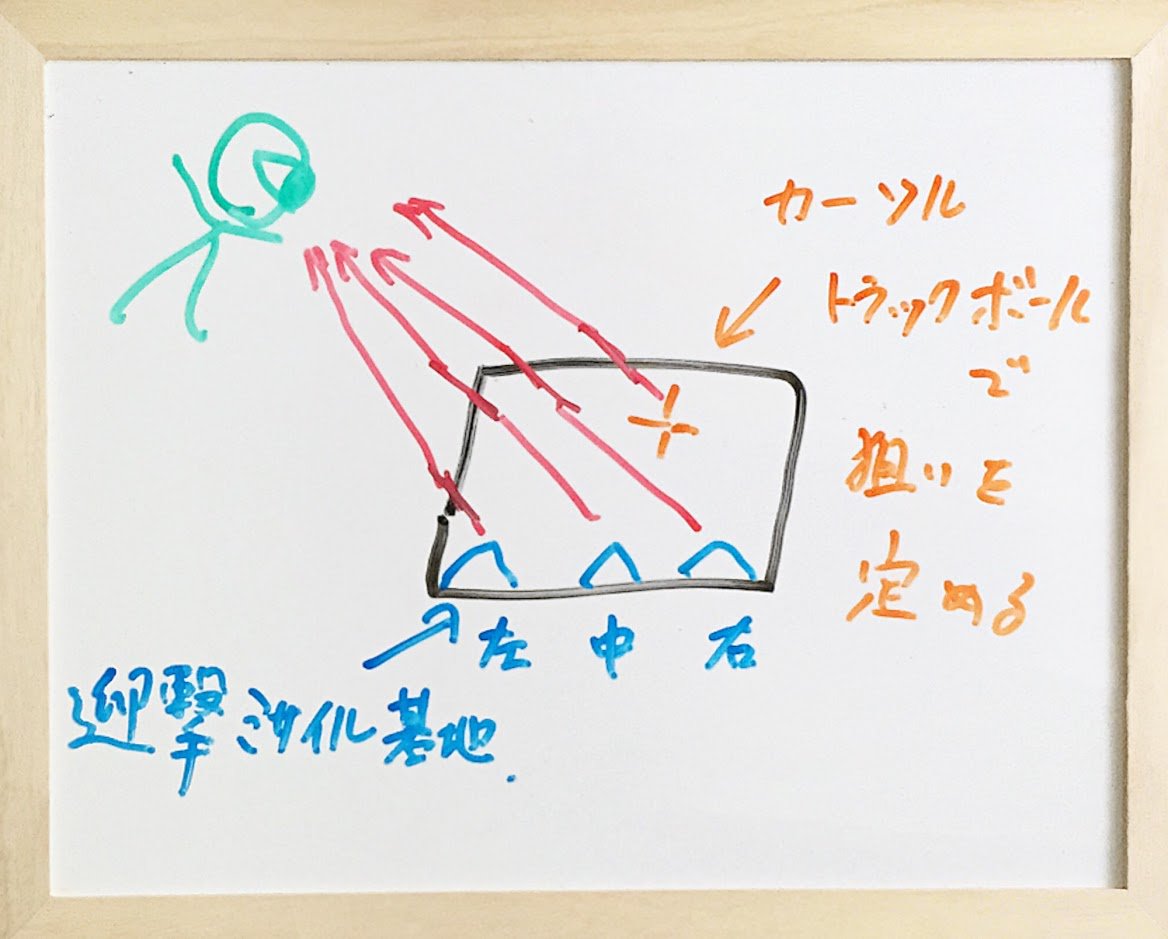 カーソル
トラックボール
で
狙いを
定める
左 中 右
迎撃ミサイル基地.